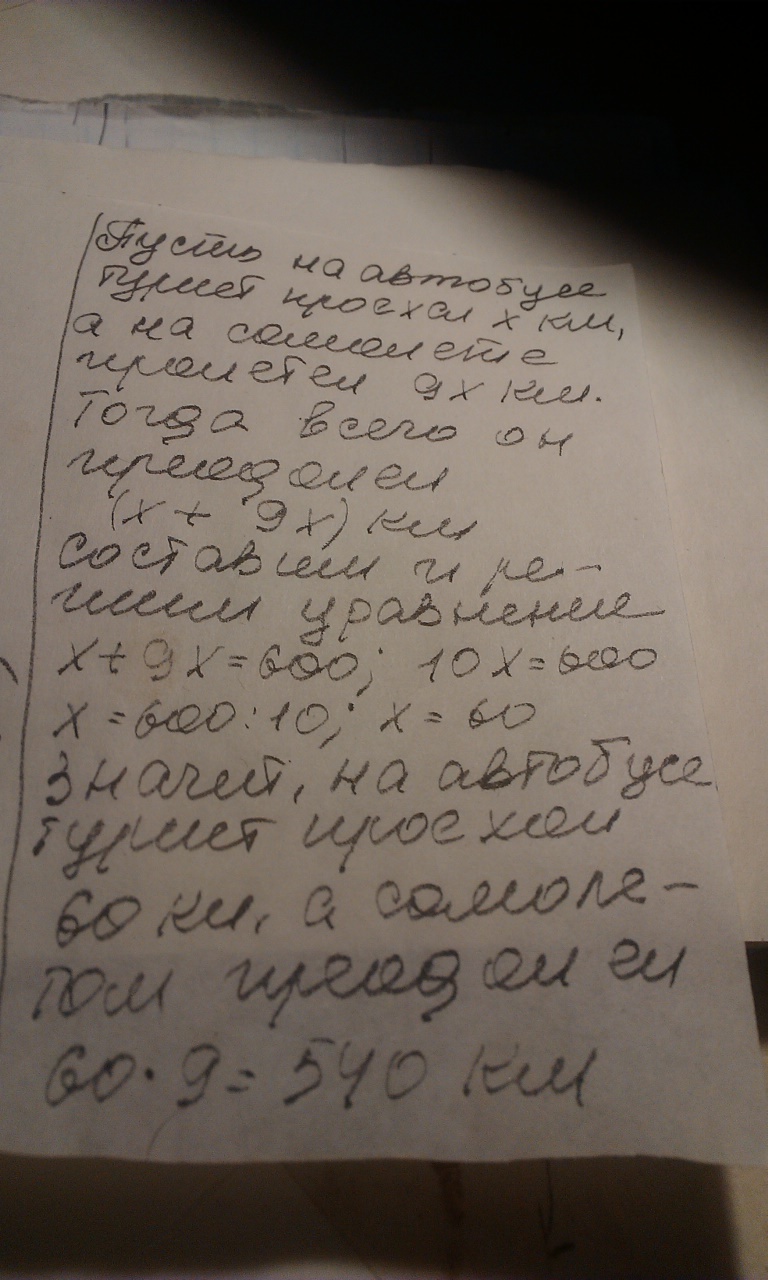 Пусть на автобусе
турист проехал x км,
а на самолете
пролетел 9x км.
Тогда всего он
преодолел
(x + 9x) км
составим и ре-
шим уравнение
x+9x=600; 10x=600
x=600:10; x=60
Значит, на автобусе
турист проехал
60 км, а самоле-
том преодолел
60·9=540 км